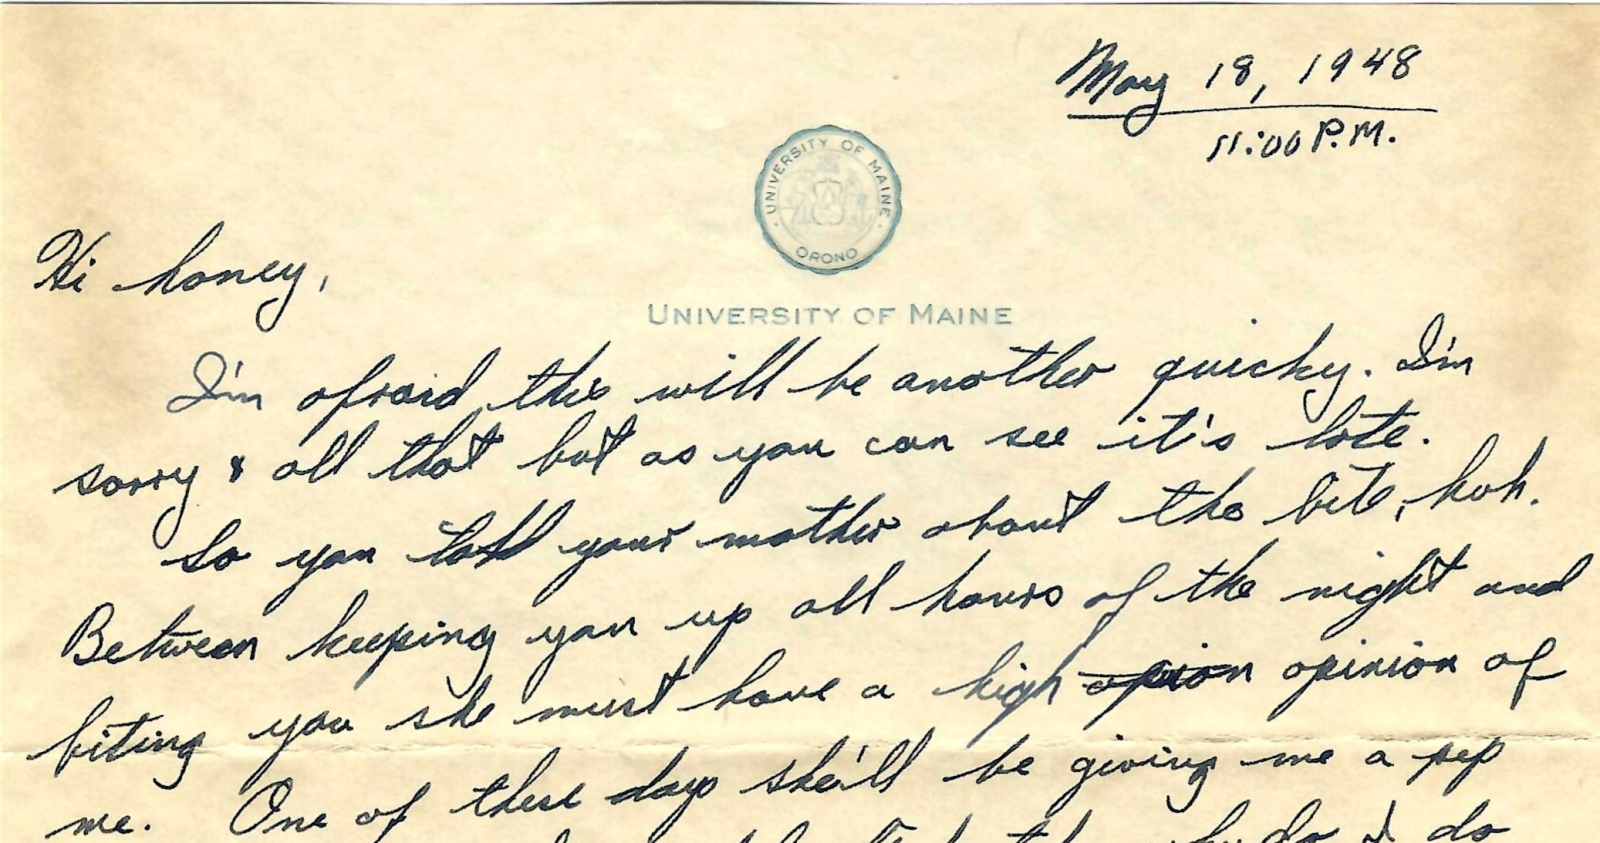 May 18, 1948
11:00 P.M.
UNIVERSITY OF MAINE
ORONO
Hi honey,
UNIVERSITY OF MAINE
I'm afraid this will be another quicky. I'm
sorry & all that but as you can see it's late.
So you told your mother about the bite, huh.
Between keeping you up all hours of the night and
biting you she must have a high opion opinion of
me. One of these days she'll be giving me a pep
do I do